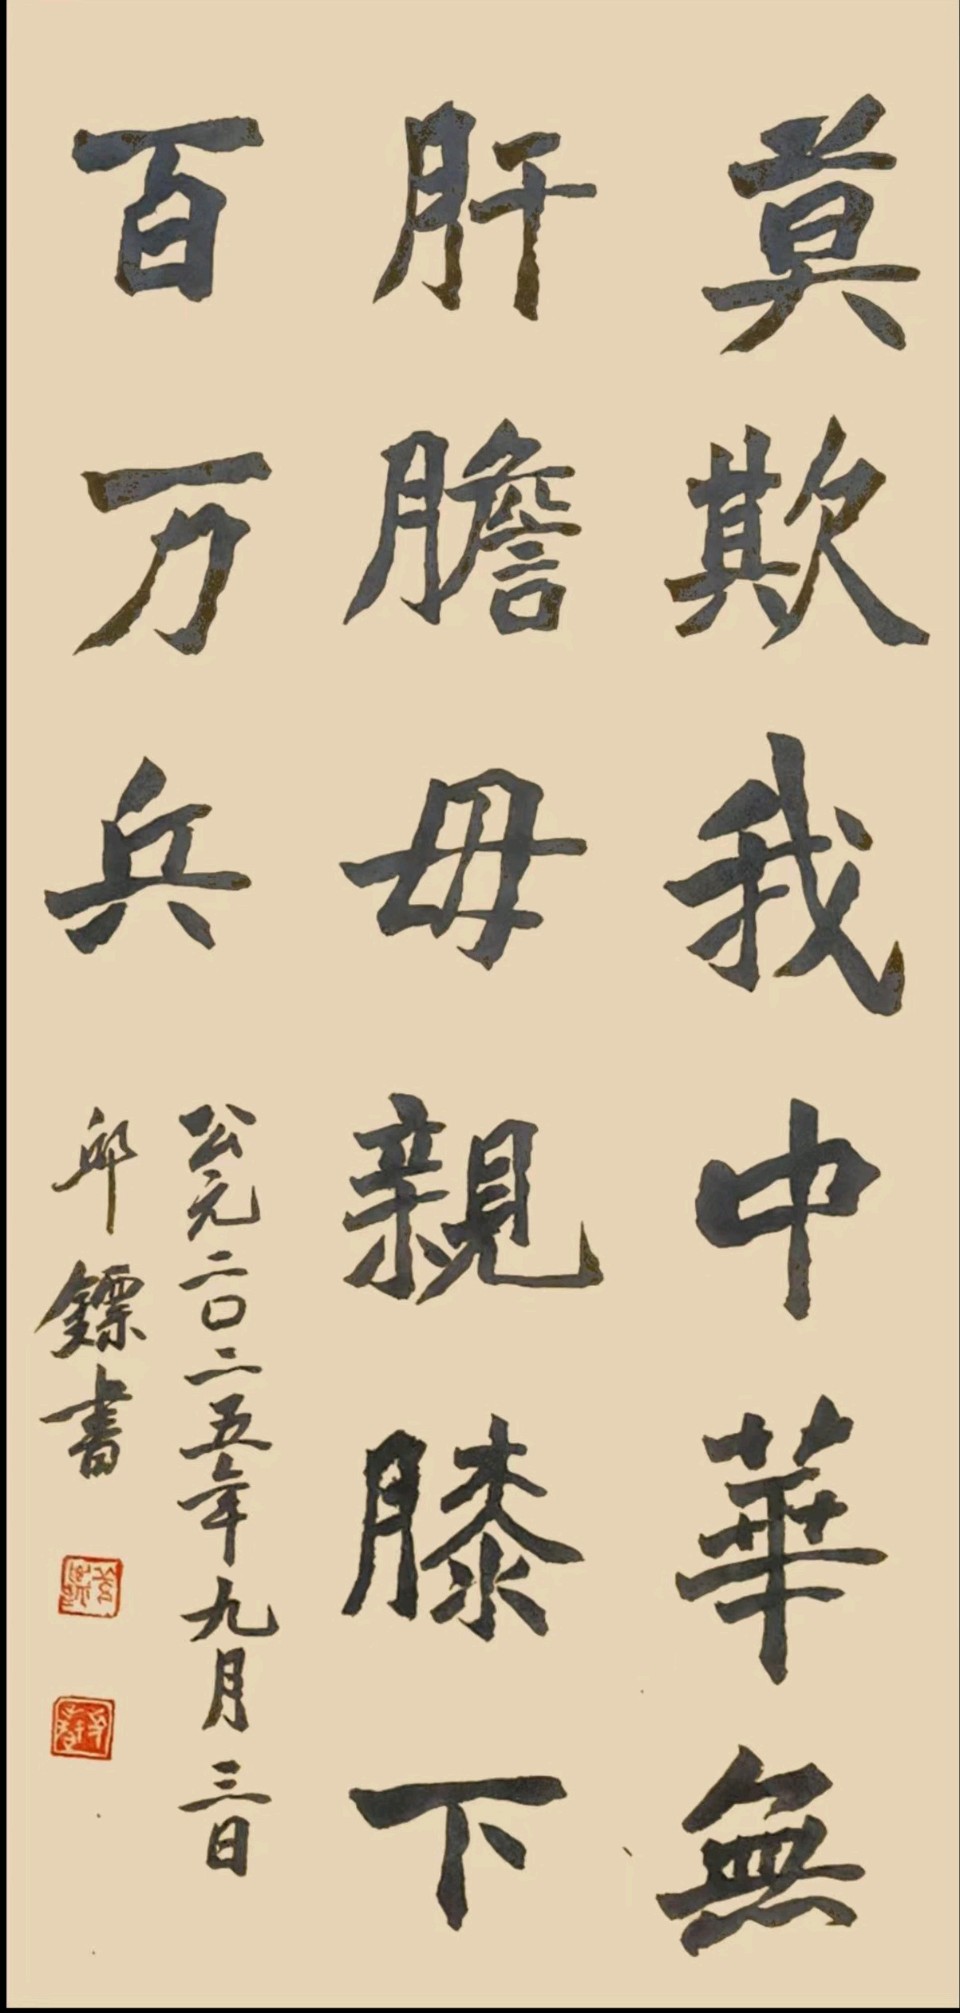 莫欺我中華無
肝膽毋親膝下
百万兵
公元二〇二五年九月三日
邱鏢書